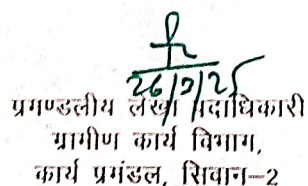 26/9/25
प्रमण्डलीय लेखा पदाधिकारी
ग्रामीण कार्य विभाग,
कार्य प्रमंडल, सिवान-2